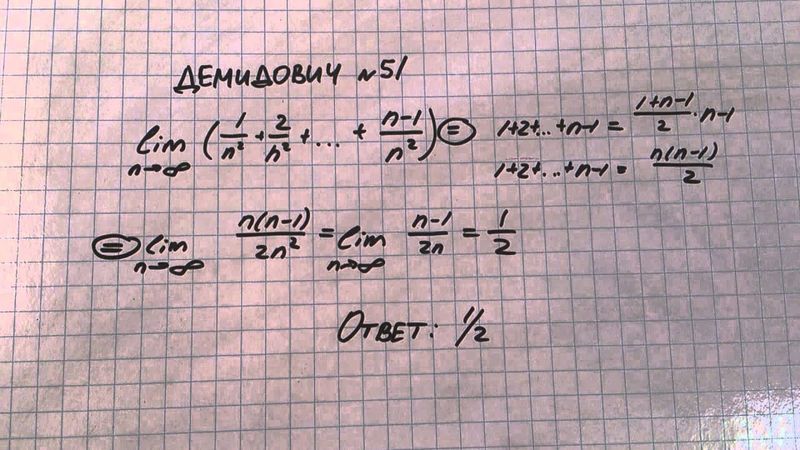 ДЕМИДОВИЧ №51
lim n→∞ (1/n² + 2/n² + ... + (n-1)/n²) =
1+2+...+n-1 = (1+n-1)/2 · n-1
1+2+...+n-1 = n(n-1)/2
= lim n→∞ n(n-1)/2n² = lim n→∞ (n-1)/2n = 1/2
ОТВЕТ: 1/2